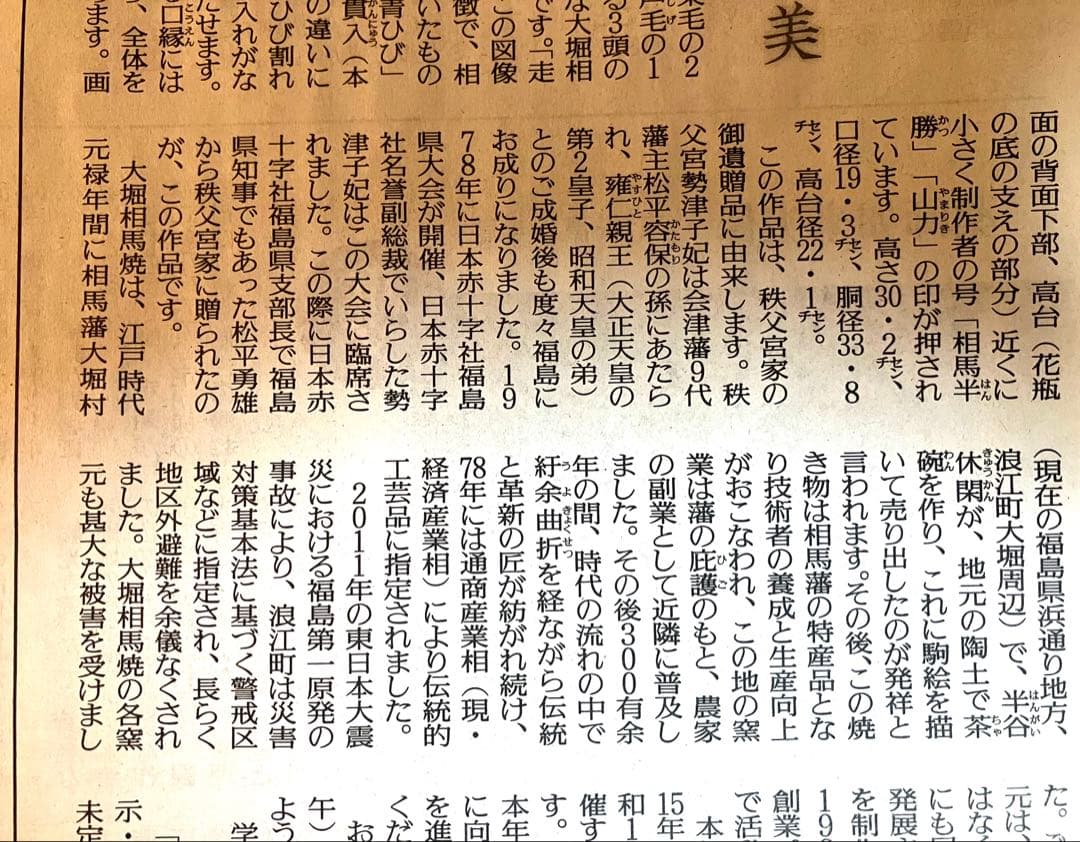 美
毛の2
毛の1
る3頭の
な大堀相
です。「走
この図像
徴で、相
いたもの
青ひび」
貫入（本
の違いに
ひび割れ
入れがな
たせます。
口縁には
、全体を
ます。画
面の背面下部、高台（花瓶
の底の支えの部分）近くに
小さく制作者の号「相馬半
勝」「山力」の印が押され
ています。高さ30・2㌢、
口径19・3㌢、胴径33・8
㌢、高台径22・1㌢。
この作品は、秩父宮家の
御遺贈品に由来します。秩
父宮勢津子妃は会津藩9代
藩主松平容保の孫にあたら
れ、雍仁親王（大正天皇の
第2皇子、昭和天皇の弟）
とのご成婚後も度々福島に
お成りになりました。19
78年に日本赤十字社福島
県大会が開催、日本赤十字
社名誉副総裁でいらした勢
津子妃はこの大会に臨席さ
れました。この際に日本赤
十字社福島県支部長で福島
県知事でもあった松平勇雄
から秩父宮家に贈られたの
が、この作品です。
大堀相馬焼は、江戸時代
元禄年間に相馬藩大堀村
（現在の福島県浜通り地方、
浪江町大堀周辺）で、半谷
休閑が、地元の陶土で茶
碗を作り、これに駒絵を描
いて売り出したのが発祥と
言われます。その後、この焼
き物は相馬藩の特産品とな
り技術者の養成と生産向上
がおこなわれ、この地の窯
業は藩の庇護のもと、農家
の副業として近隣に普及し
ました。その後300有余
年の間、時代の流れの中で
紆余曲折を経ながら伝統
と革新の匠が紡がれ続け、
78年には通商産業相（現・
経済産業相）により伝統的
工芸品に指定されました。
2011年の東日本大震
災における福島第一原発の
事故により、浪江町は災害
対策基本法に基づく警戒区
域などに指定され、長らく
地区外避難を余儀なくされ
ました。大堀相馬焼の各窯
元も甚大な被害を受けまし
た。
元は、
はなく
にも
発展
を制
19
創業
で活
本
15年
和1
催す
す。
本年
に向
を進
くだ
お
午）
よう
学
「
示・
未定